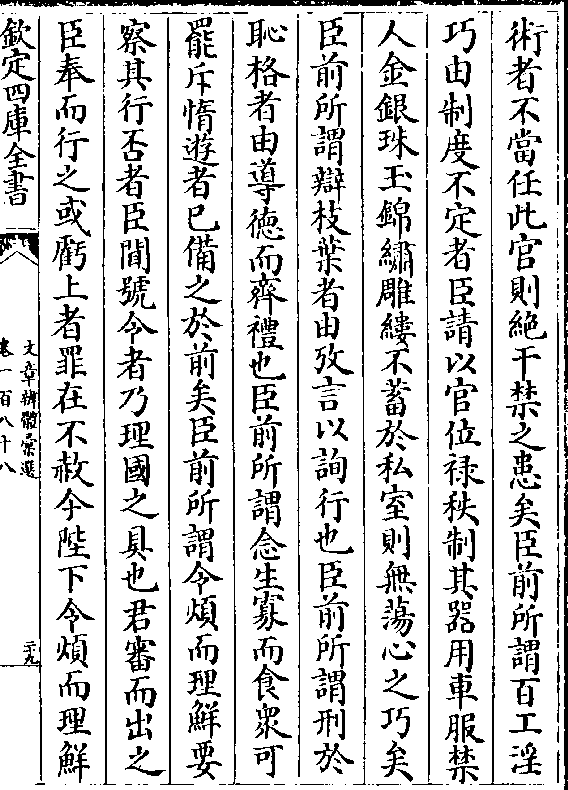 術者不當任此官則絶干禁之患矣臣前所謂百工淫
巧由制度不定者臣請以官位禄秩制其器用車服禁
人金銀珠玉錦繡雕縷不蓄於私室則無蕩心之巧矣
臣前所謂辯枝葉者由攷言以詢行也臣前所謂刑於
恥格者由導徳而齊禮也臣前所謂念生寡而食衆可
罷斥惰遊者已備之於前矣臣前所謂令煩而理鮮要
察其行否者臣聞號令者乃理國之具也君審而出之
臣奉而行之或虧上者罪在不赦今陛下令煩而理鮮
欽定四庫全書
文章辨體彙選
卷一百八十八
二九